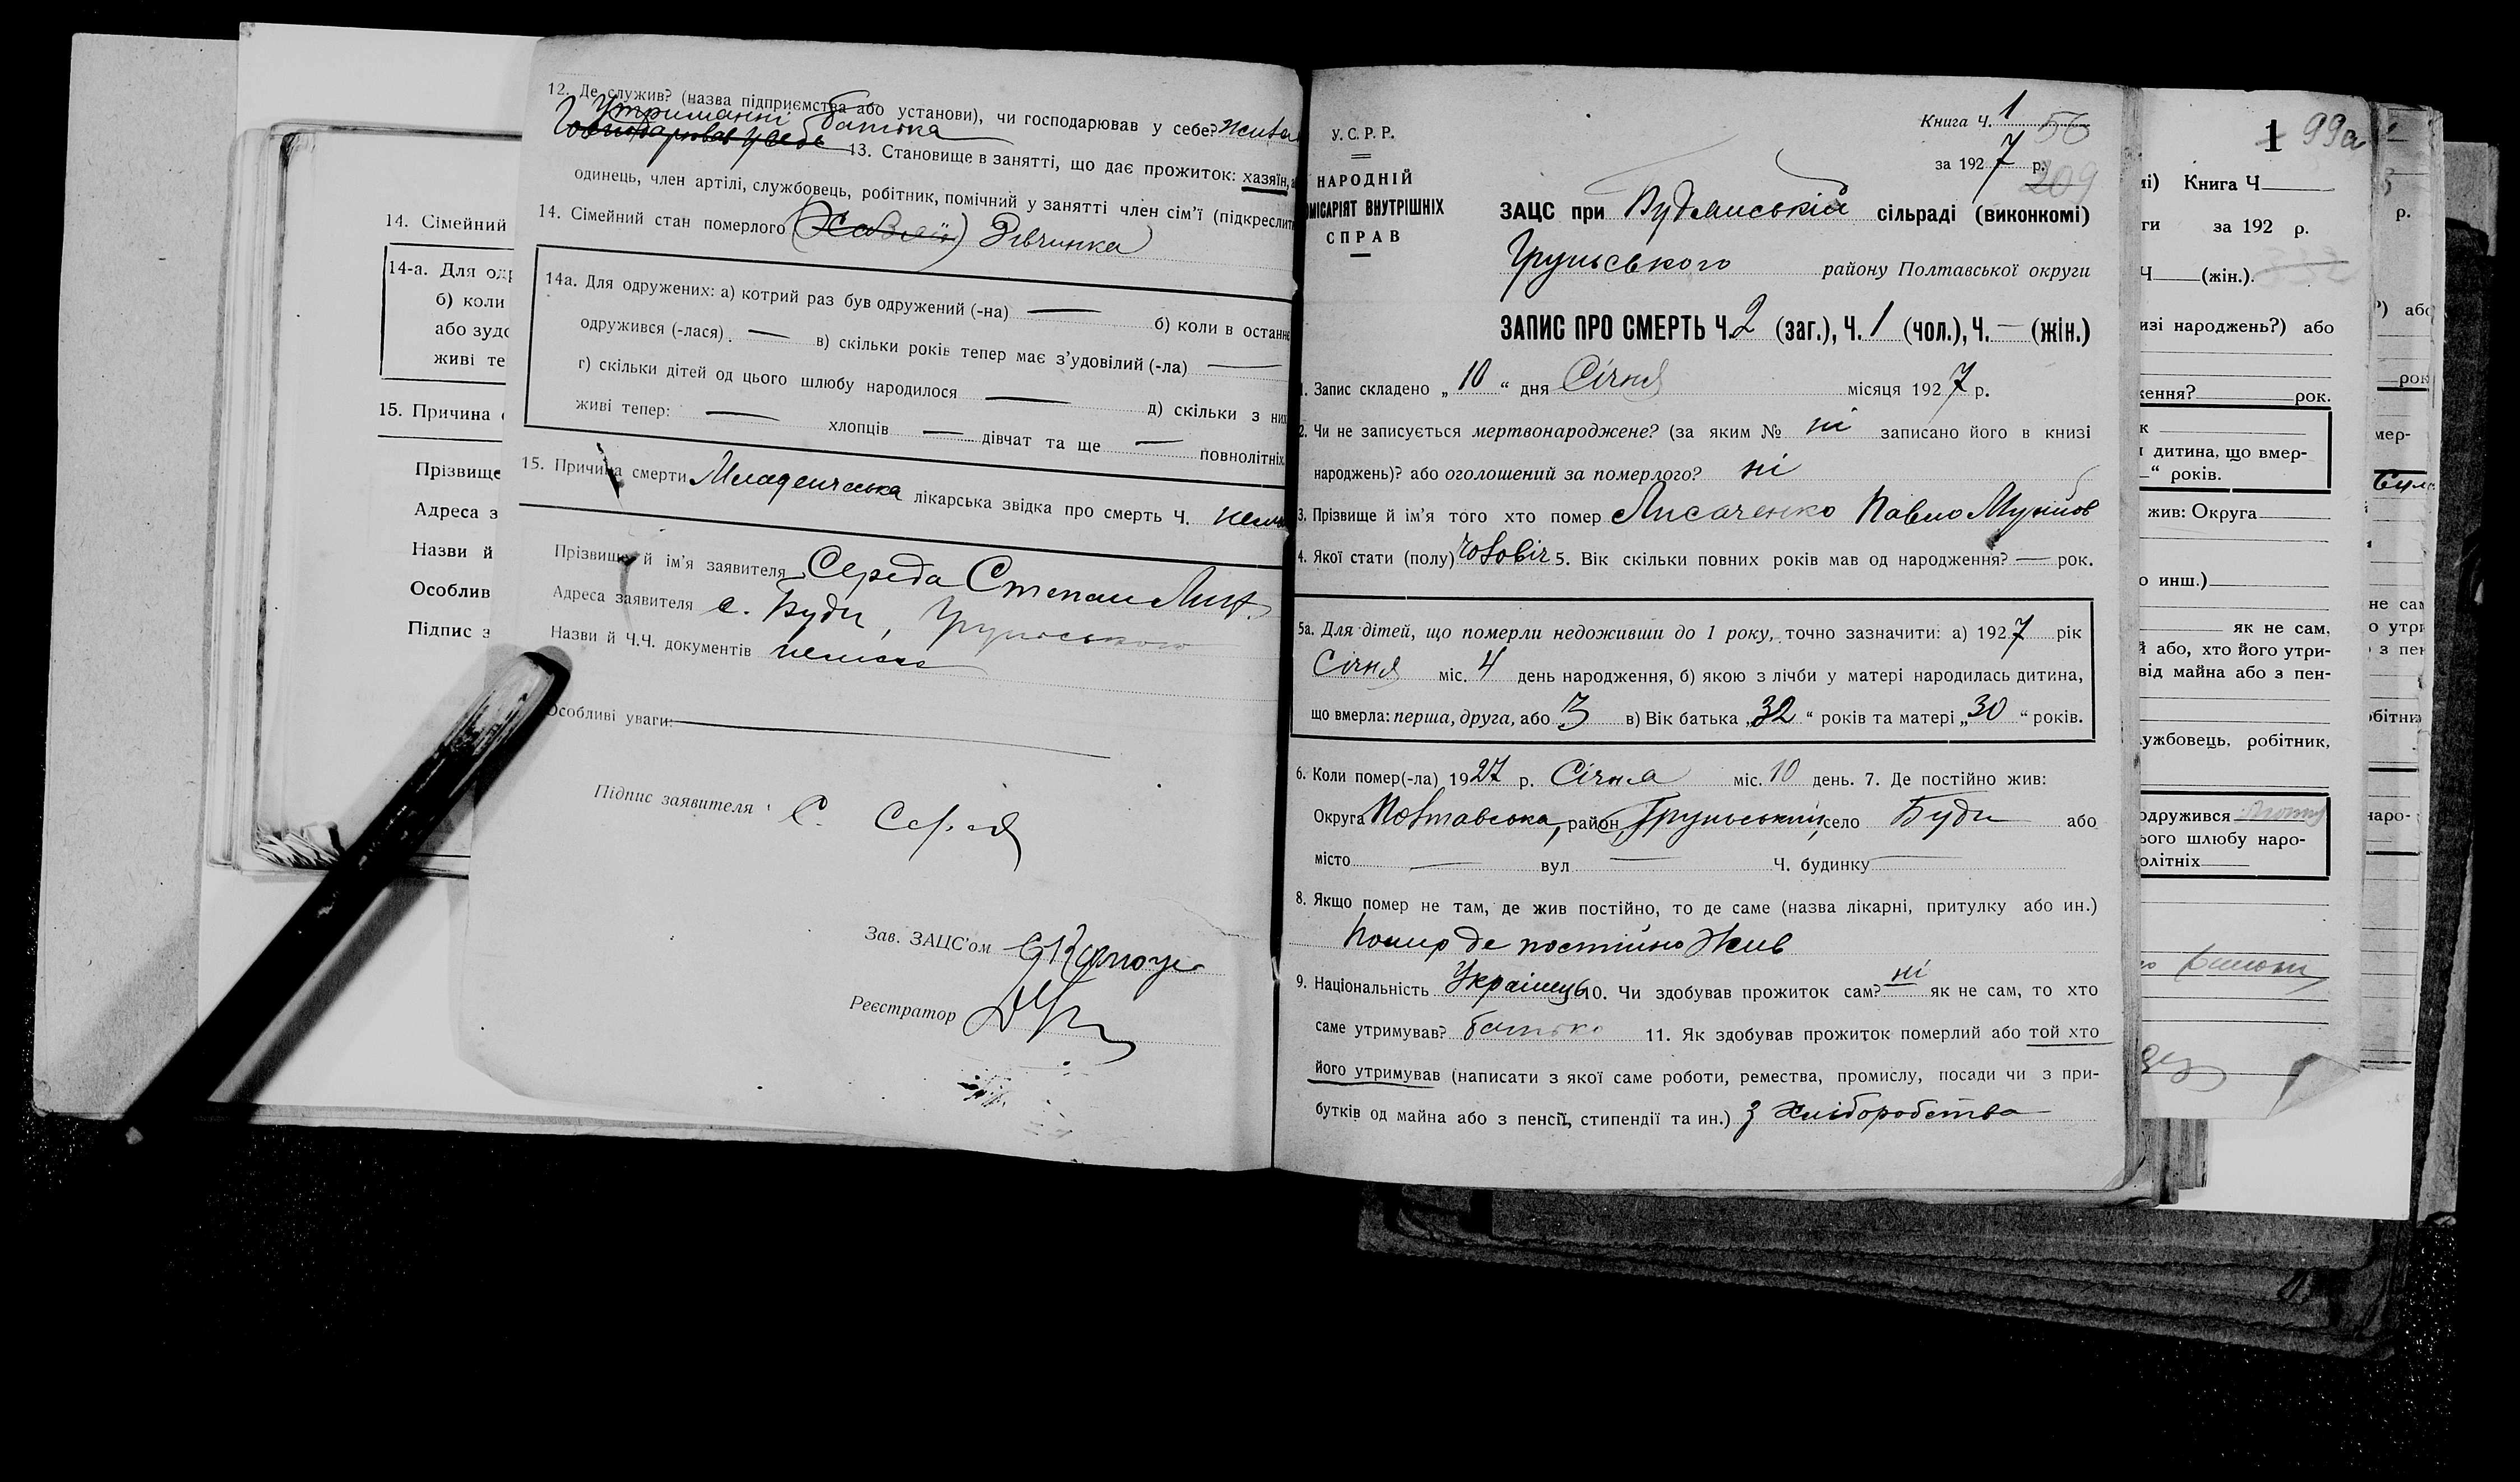 14. Сімейний
14-а. Для одр
б) коли
або зудо
живі те
15. Причина с
Прізвище
Адреса з
Назви й
Особлив
Підпис з
12. Де служив? (назва підприємства або установи), чи господарював у себе?
Утриманні батька
Господарював у себе 13. Становище в занятті, що дає прожиток: хазяїн,
одинець, член артілі, службовець, робітник, помічний у занятті член сім'ї (підкреслит
14. Сімейний стан померлого (Хазяїн) Дівчинка
14а. Для одружених: а) котрий раз був одружений (-на) — б) коли в останн
одружився (-лася). — в) скільки років тепер має з'удовілий (-ла) —
г) скільки дітей од цього шлюбу народилося — д) скільки з них
живі тепер: — хлопців — дівчат та ще — повнолітніх
15. Причина смерти Младенчеська лікарська звідка про смерть Ч.
Прізвище й ім'я заявителя Середа Степан
Адреса заявителя с. Буди, Груньського
Назви й Ч.Ч. документів немає
Особливі уваги: —
Підпис заявителя С.
Зав. ЗАЦС'ом
Реєстратор
У.С.Р.Р.
НАРОДНІЙ
МІСАРІЯТ ВНУТРІШНІХ
СПРАВ
Книга Ч. 1 56
за 1927 р.
209
ЗАЦС при Будянській сільраді (виконкомі)
Груньського району Полтавської округи
ЗАПИС ПРО СМЕРТЬ Ч. 2 (заг.), Ч. 1 (чол.), Ч. — (жін.)
1. Запис складено „10“ дня Січня місяця 1927 р.
2. Чи не записується мертвонароджене? (за яким № ні записано його в книзі
народжень)? або оголошений за померлого? ні
3. Прізвище й ім'я того хто помер Лисаченко Павло
4. Якої стати (полу) чоловіч 5. Вік скільки повних років мав од народження? — рок.
5а. Для дітей, що померли недоживши до 1 року, точно зазначити: а) 1927 рік
Січня міс. 4 день народження, б) якою з лічби у матері народилась дитина,
що вмерла: перша, друга, або 3 в) Вік батька „32“ років та матері „30“ років.
6. Коли помер(-ла) 1927 р. Січня міс. 10 день. 7. Де постійно жив:
Округа Полтавська, район Груньський, село Буди або
місто — вул — Ч. будинку —
8. Якщо помер не там, де жив постійно, то де саме (назва лікарні, притулку або ин.)
Помер де постійно жив
9. Національність Українець 10. Чи здобував прожиток сам? ні як не сам, то хто
саме утримував? батько 11. Як здобував прожиток померлий або той хто
його утримував (написати з якої саме роботи, ремества, промислу, посади чи з при-
бутків од майна або з пенсії, стипендії та ин.) З хліборобства
1 99а
мі) Книга Ч
ги за 192 р.
Ч (жін.).
изі народжень?) або
ження? рок.
к
дитина, що вмер-
“ років.
жив: Округа
о инш.)
як не сам,
й або, хто його утри-
від майна або з пен-
ужбовець, робітник,
одружився
ього шлюбу наро-
олітніх
р.
або
рок
мер-
не сам
о утри
з пен
обітни
наро-